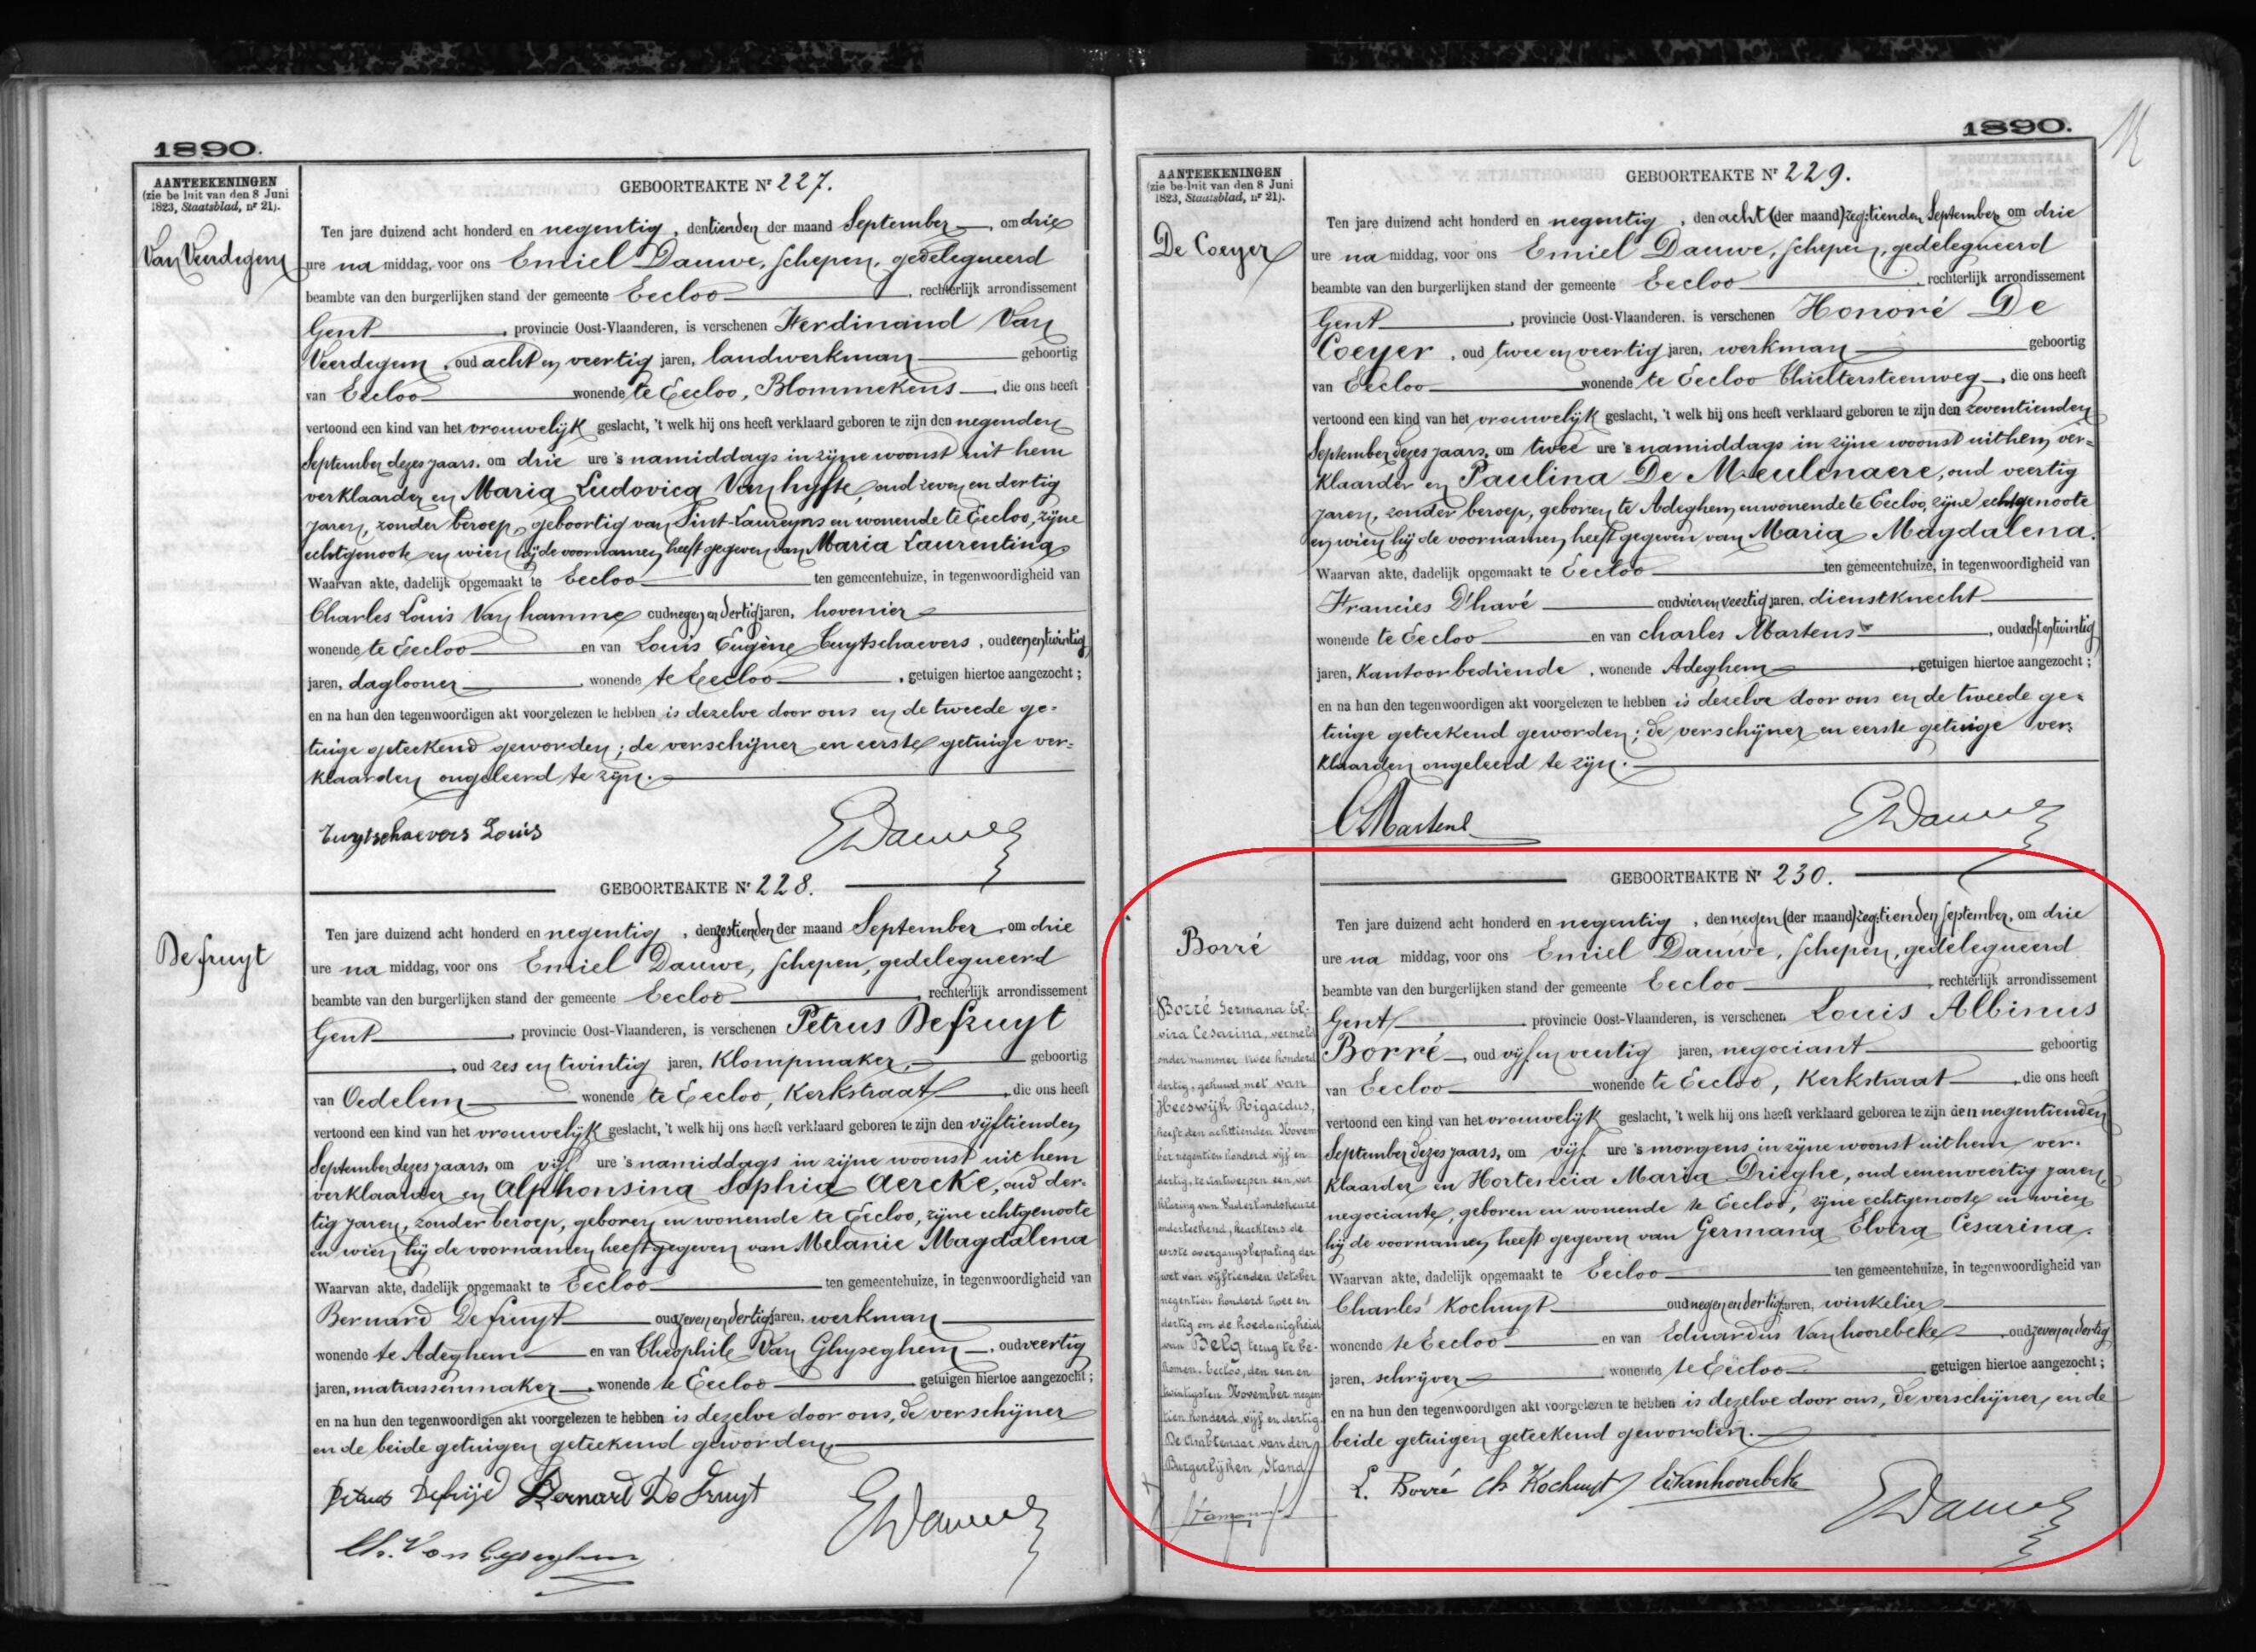 1890.
AANTEEKENINGEN
(zie be luit van den 8 Juni
1823, Staatsblad, nr 21).
Van Veerdegem
GEBOORTEAKTE Nr 227.
Ten jare duizend acht honderd en negentig, den tienden der maand September, om drie
ure na middag, voor ons Emiel Dauwe, schepen, gedelegueerd
beambte van den burgerlijken stand der gemeente Eecloo, rechterlijk arrondissement
Gent, provincie Oost-Vlaanderen, is verschenen Ferdinand Van
Veerdegem, oud acht en veertig jaren, landwerkman geboortig
van Eecloo wonende te Eecloo, Blommekens, die ons heeft
vertoond een kind van het vrouwelijk geslacht, 't welk hij ons heeft verklaard geboren te zijn den negenden
September dezes jaars, om drie ure 's namiddags in zijne woonst uit hem
verklaarder en Maria Ludovica Van hyfte, oud zeven en dertig
jaren, zonder beroep, geboortig van Sint-Laureyns en wonende te Eecloo, zijne
echtgenoote en wien hij de voornamen heeft gegeven van Maria Laurentina
Waarvan akte, dadelijk opgemaakt te Eecloo ten gemeentehuize, in tegenwoordigheid van
Charles Louis Van hamme oud negen en dertig jaren, hovenier
wonende te Eecloo en van Louis Eugène Tuytschaevers, oud een en twintig
jaren, daglooner, wonende te Eecloo, getuigen hiertoe aangezocht;
en na hun den tegenwoordigen akt voorgelezen te hebben is dezelve door ons en de tweede ge-
tuige geteekend geworden; de verschijner en eerste getuige ver-
klaarden ongeleerd te zijn.
Tuytschaevers Louis EDauwe
De fruyt
GEBOORTEAKTE Nr 228.
Ten jare duizend acht honderd en negentig, den zestienden der maand September, om drie
ure na middag, voor ons Emiel Dauwe, schepen, gedelegueerd
beambte van den burgerlijken stand der gemeente Eecloo, rechterlijk arrondissement
Gent, provincie Oost-Vlaanderen, is verschenen Petrus De fruyt
, oud zes en twintig jaren, klompmaker, geboortig
van Oedelem wonende te Eecloo, Kerkstraat, die ons heeft
vertoond een kind van het vrouwelijk geslacht, 't welk hij ons heeft verklaard geboren te zijn den vijftienden
September dezes jaars, om vijf ure 's namiddags in zijne woonst uit hem
verklaarder en Alphonsina Sophia Aercke, oud der-
tig jaren, zonder beroep, geboren en wonende te Eecloo, zijne echtgenoote
en wien hij de voornamen heeft gegeven van Melanie Magdalena
Waarvan akte, dadelijk opgemaakt te Eecloo ten gemeentehuize, in tegenwoordigheid van
Bernard De fruyt oud zeven en dertig jaren, werkman
wonende te Adeghem en van Theophile Van Ghyseghem, oud veertig
jaren, matrassenmaker, wonende te Eecloo getuigen hiertoe aangezocht;
en na hun den tegenwoordigen akt voorgelezen te hebben is dezelve door ons, de verschijner
en de beide getuigen geteekend geworden.
Petrus Defruyt Bernard De Fruyt EDauwe
Th. Van Gyseghem
1890.
AANTEEKENINGEN
(zie be luit van den 8 Juni
1823, Staatsblad, nr 21).
De Coeyer
GEBOORTEAKTE Nr 229.
Ten jare duizend acht honderd en negentig, den acht (der maand) zeg: tienden September om drie
ure na middag, voor ons Emiel Dauwe, schepen, gedelegueerd
beambte van den burgerlijken stand der gemeente Eecloo, rechterlijk arrondissement
Gent, provincie Oost-Vlaanderen, is verschenen Honoré De
Coeyer, oud twee en veertig jaren, werkman geboortig
van Eecloo wonende te Eecloo Thieltersteenweg, die ons heeft
vertoond een kind van het vrouwelijk geslacht, 't welk hij ons heeft verklaard geboren te zijn den zeventienden
September dezes jaars, om twee ure 's namiddags in zijne woonst uit hem ver-
klaarder en Paulina De Meulenaere, oud veertig
jaren, zonder beroep, geboren te Adeghem en wonende te Eecloo, zijne echtgenoote
en wien hij de voornamen heeft gegeven van Maria Magdalena.
Waarvan akte, dadelijk opgemaakt te Eecloo ten gemeentehuize, in tegenwoordigheid van
Francies D'havé oud vier en veertig jaren, dienstknecht
wonende te Eecloo en van Charles Martens, oud acht en twintig
jaren, kantoorbediende, wonende Adeghem, getuigen hiertoe aangezocht;
en na hun den tegenwoordigen akt voorgelezen te hebben is dezelve door ons en de tweede ge-
tuige geteekend geworden; de verschijner en eerste getuige ver-
klaarden ongeleerd te zijn.
C Martens EDauwe
Borré
Borré Germana El-
vira Cesarina, vermeld
onder nummer twee honderd
dertig, gehuwd met van
Heeswijk Rigardus,
heeft den achttienden Novem
ber negentien honderd vijf en
dertig, te Antwerpen een ver
klaring van Vaderlandskeuze
onderteekend, krachtens de
eerste overgangsbepaling der
wet van vijftienden October
negentien honderd twee en
dertig om de hoedanigheid
van Belg terug te be-
komen. Eecloo, den een en
twintigsten November negen
tien honderd vijf en dertig.
De Ambtenaar van den
Burgerlijken Stand
GEBOORTEAKTE Nr 230.
Ten jare duizend acht honderd en negentig, den negen (der maand) zeg: tienden September, om drie
ure na middag, voor ons Emiel Dauwe, schepen, gedelegueerd
beambte van den burgerlijken stand der gemeente Eecloo, rechterlijk arrondissement
Gent, provincie Oost-Vlaanderen, is verschenen Louis Albinus
Borré, oud vijf en veertig jaren, negociant geboortig
van Eecloo wonende te Eecloo, Kerkstraat, die ons heeft
vertoond een kind van het vrouwelijk geslacht, 't welk hij ons heeft verklaard geboren te zijn den negentienden
September dezes jaars, om vijf ure 's morgens in zijne woonst uit hem ver-
klaarder en Hortencia Maria Drieghe, oud eenenveertig jaren,
negociante, geboren en wonende te Eecloo, zijne echtgenoote en wien
hij de voornamen heeft gegeven van Germana Elvira Cesarina.
Waarvan akte, dadelijk opgemaakt te Eecloo ten gemeentehuize, in tegenwoordigheid van
Charles Kochuyt oud negen en dertig jaren, winkelier
wonende te Eecloo en van Eduardus Vanhoorebeke, oud zeven en dertig
jaren, schrijver, wonende te Eecloo getuigen hiertoe aangezocht;
en na hun den tegenwoordigen akt voorgelezen te hebben is dezelve door ons, de verschijner, en de
beide getuigen geteekend geworden.
L. Borré Ch Kochuyt EVanhoorebeke EDauwe